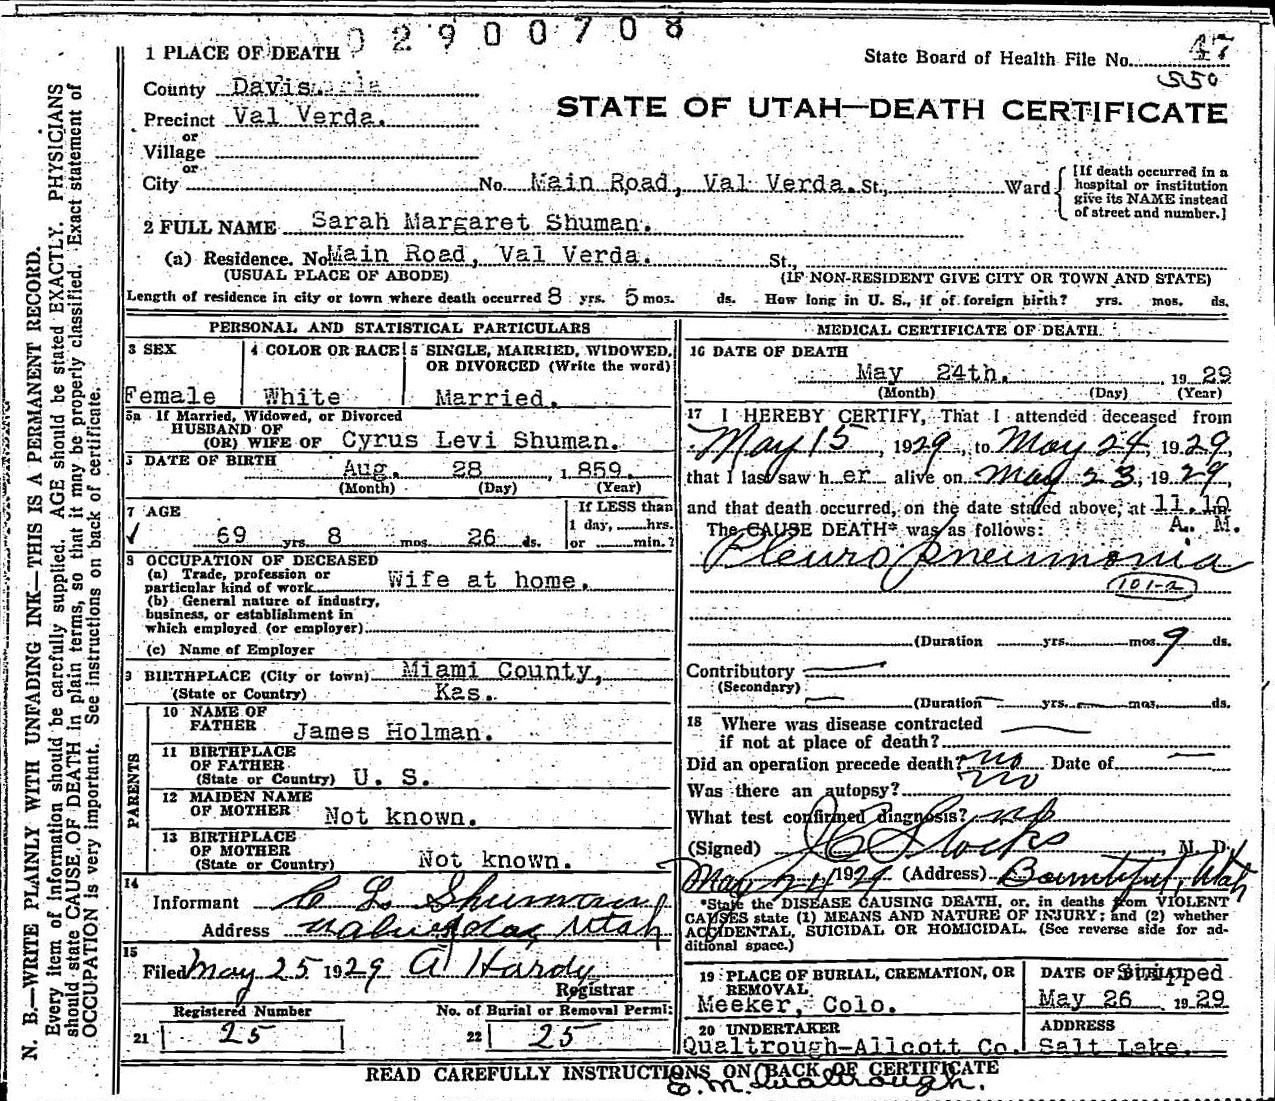 02900708
1 PLACE OF DEATH
State Board of Health File No. 47
550
County Davis.
STATE OF UTAH—DEATH CERTIFICATE
Precinct Val Verda.
or
Village
or
City No. Main Road, Val Verda. St., Ward
[If death occurred in a
hospital or institution
give its NAME instead
of street and number.]
2 FULL NAME Sarah Margaret Shuman.
(a) Residence. No. Main Road, Val Verda. St.,
(USUAL PLACE OF ABODE) (IF NON-RESIDENT GIVE CITY OR TOWN AND STATE)
Length of residence in city or town where death occurred 8 yrs. 5 mos. ds. How long in U. S., if of foreign birth? yrs. mos. ds.
PERSONAL AND STATISTICAL PARTICULARS
3 SEX 4 COLOR OR RACE 5 SINGLE, MARRIED, WIDOWED,
OR DIVORCED (Write the word)
Female White Married.
5a If Married, Widowed, or Divorced
HUSBAND OF
(OR) WIFE OF Cyrus Levi Shuman.
DATE OF BIRTH Aug. 28, 1859.
(Month) (Day) (Year)
7 AGE If LESS than
1 day, hrs.
69 yrs. 8 mos. 26 ds. or min.?
8 OCCUPATION OF DECEASED
(a) Trade, profession or
particular kind of work Wife at home.
(b) General nature of industry,
business, or establishment in
which employed (or employer)
(c) Name of Employer
9 BIRTHPLACE (City or town) Miami County,
(State or Country) Kas.
PARENTS
10 NAME OF
FATHER James Holman.
11 BIRTHPLACE
OF FATHER
(State or Country) U. S.
12 MAIDEN NAME
OF MOTHER Not known.
13 BIRTHPLACE
OF MOTHER
(State or Country) Not known.
14
Informant C L Shuman
Address Utah
15
Filed May 25 1929 A Hardy
Registrar
Registered Number No. of Burial or Removal Permit
21 25 22 25
MEDICAL CERTIFICATE OF DEATH.
16 DATE OF DEATH
May 24th. 1929
(Month) (Day) (Year)
17 I HEREBY CERTIFY, That I attended deceased from
May 15, 1929, to May 24, 1929,
that I last saw her alive on May 23, 1929
and that death occurred, on the date stated above, at 11.10
A. M.
The CAUSE DEATH* was as follows:
Pleuro pneumonia
101-a
(Duration yrs. mos. 9 ds.
Contributory
(Secondary)
(Duration yrs. mos. ds.
18 Where was disease contracted
if not at place of death?
Did an operation precede death? no Date of
Was there an autopsy? no
What test confirmed diagnosis?
(Signed) Stocks, M. D.
May 24 1929 (Address) Bountiful, Utah
*State the DISEASE CAUSING DEATH, or, in deaths from VIOLENT
CAUSES state (1) MEANS AND NATURE OF INJURY; and (2) whether
ACCIDENTAL, SUICIDAL OR HOMICIDAL. (See reverse side for ad-
ditional space.)
19 PLACE OF BURIAL, CREMATION, OR
REMOVAL
Meeker, Colo.
DATE OF Shipped
May 26 1929
20 UNDERTAKER
Qualtrough-Allcott Co.
ADDRESS
Salt Lake.
READ CAREFULLY INSTRUCTIONS ON BACK OF CERTIFICATE
E. M. Qualtrough.
N. B.—WRITE PLAINLY WITH UNFADING INK—THIS IS A PERMANENT RECORD.
Every item of information should be carefully supplied. AGE should be stated EXACTLY. PHYSICIANS
should state CAUSE OF DEATH in plain terms, so that it may be properly classified. Exact statement of
OCCUPATION is very important. See instructions on back of certificate.